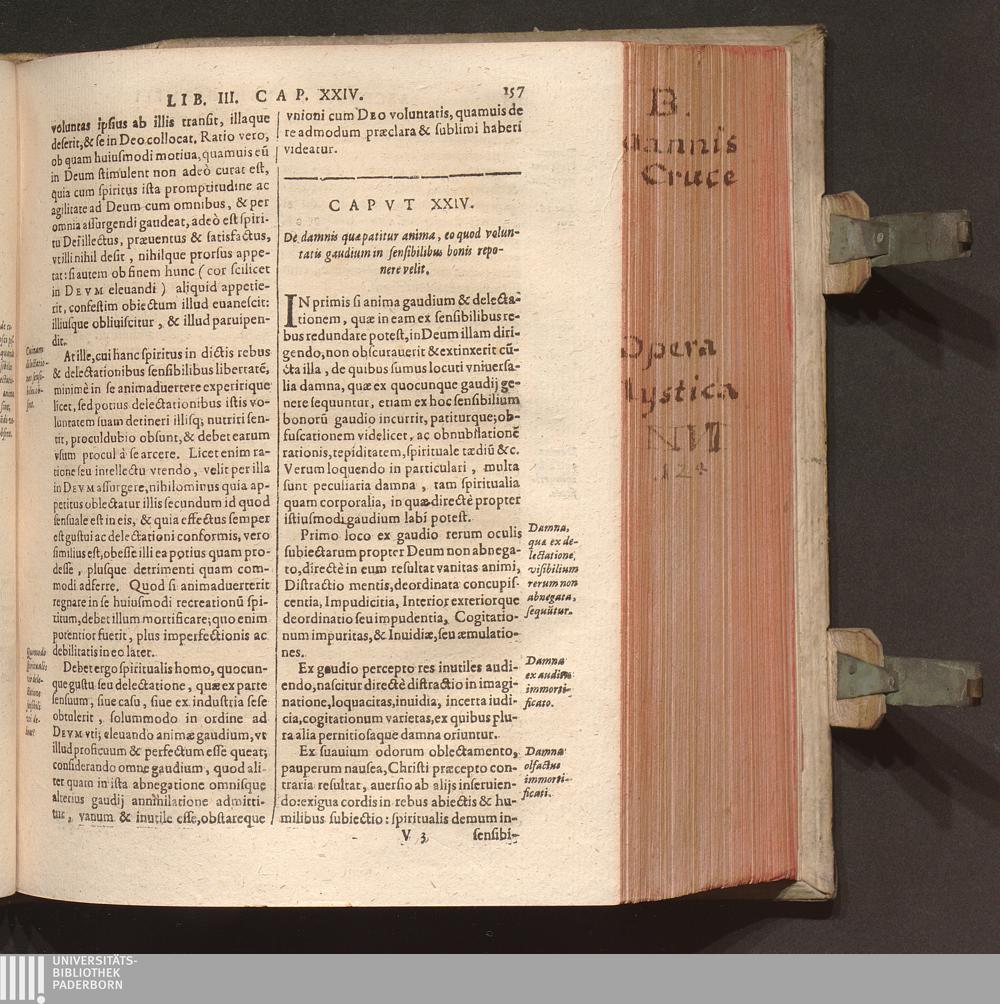 LIB. III. CAP. XXIV. 157
voluntas ipsius ab illis transit, illaque
deserit,& se in Deo collocat. Ratio vero,
ob quam huiusmodi motiua,quamuis eũ
in Deum stimulent non adeò curat est,
quia cum spiritus ista promptitudine ac
agilitate ad Deum cum omnibus, & per
omnia assurgendi gaudeat, adeò est spiri-
tu Dei illectus, præuentus & satisfactus,
vt illi nihil desit, nihilque prorsus appe-
tat: si autem ob finem hunc (cor scilicet
in DEVM eleuandi) aliquid appetie-
rit, confestim obiectum illud euanescit:
illiusque obliuiscitur, & illud paruipen-
dit.
At ille, cui hanc spiritus in dictis rebus
& delectationibus sensibilibus libertatẽ,
minimè in se animaduertere experirique
licet, sed potius delectationibus istis vo-
luntatem suam detineri illisq; nutriri sen-
tit, proculdubio obsunt, & debet earum
vsum procul à se arcere. Licet enim ra-
tione seu intellectu vtendo, velit per illa
in DEVM assurgere, nihilominus quia ap-
petitus oblectatur illis secundum id quod
sensuale est in eis, & quia effectus semper
est gustui ac delectationi conformis, vero
similius est, obesse illi ea potius quam pro-
desse, plusque detrimenti quam com-
modi adferre. Quod si animaduerterit
regnare in se huiusmodi recreationũ spi-
ritum, debet illum mortificare; quo enim
potentior fuerit, plus imperfectionis ac
debilitatis in eo latet.
Debet ergo spiritualis homo, quocun-
que gustu seu delectatione, quæ ex parte
sensuum, siue casu, siue ex industria sese
obtulerit, solummodo in ordine ad
DEVM vti; eleuando animæ gaudium, vt
illud proficuum & perfectum esse queat;
considerando omne gaudium, quod ali-
ter quam in ista abnegatione omnisque
alterius gaudij annihilatione admitti-
tur, vanum & inutile esse, obstareque
vnioni cum DEO voluntatis, quamuis de
re admodum præclara & sublimi haberi
videatur.
CAPVT XXIV.
De damnis quæ patitur anima, eo quod volun-
tatis gaudium in sensibilibus bonis repo-
nere velit.
IN primis si anima gaudium & delecta-
tionem, quæ in eam ex sensibilibus re-
bus redundare potest, in Deum illam diri-
gendo, non obscurauerit & extinxerit cũ-
cta illa, de quibus sumus locuti vniuersa-
lia damna, quæ ex quocunque gaudij ge-
nere sequuntur, etiam ex hoc sensibilium
bonorũ gaudio incurrit, patiturque; ob-
fuscationem videlicet, ac obnubilationẽ
rationis, tepiditatem, spirituale tædiũ &c.
Verum loquendo in particulari, multa
sunt peculiaria damna, tam spiritualia
quam corporalia, in quæ directè propter
istiusmodi gaudium labi potest.
Primo loco ex gaudio rerum oculis
subiectarum propter Deum non abnega-
to, directè in eum resultat vanitas animi,
Distractio mentis, deordinata concupis-
centia, Impudicitia, Interior exteriorque
deordinatio seu impudentia, Cogitatio-
num impuritas, & Inuidiæ, seu æmulatio-
nes.
Ex gaudio percepto res inutiles audi-
endo, nascitur directè distractio in imagi-
natione, loquacitas, inuidia, incerta iudi-
cia, cogitationum varietas, ex quibus plu-
ra alia pernitiosaque damna oriuntur.
Ex suauium odorum oblectamento,
pauperum nausea, Christi præcepto con-
traria resultat, auersio ab alijs inseruien-
do: exigua cordis in rebus abiectis & hu-
milibus subiectio: spiritualis demum in-
V 3 sensibi-
Damna,
quæ ex de-
lectatione,
visibilium
rerum non
abnegata,
sequũtur.
Damna
ex auditu
immorti-
ficato.
Damna
olfactus
immorti-
ficati.
B.
oannis
Cruce
Opera
Mystica
124
UNIVERSITÄTS-
BIBLIOTHEK
PADERBORN